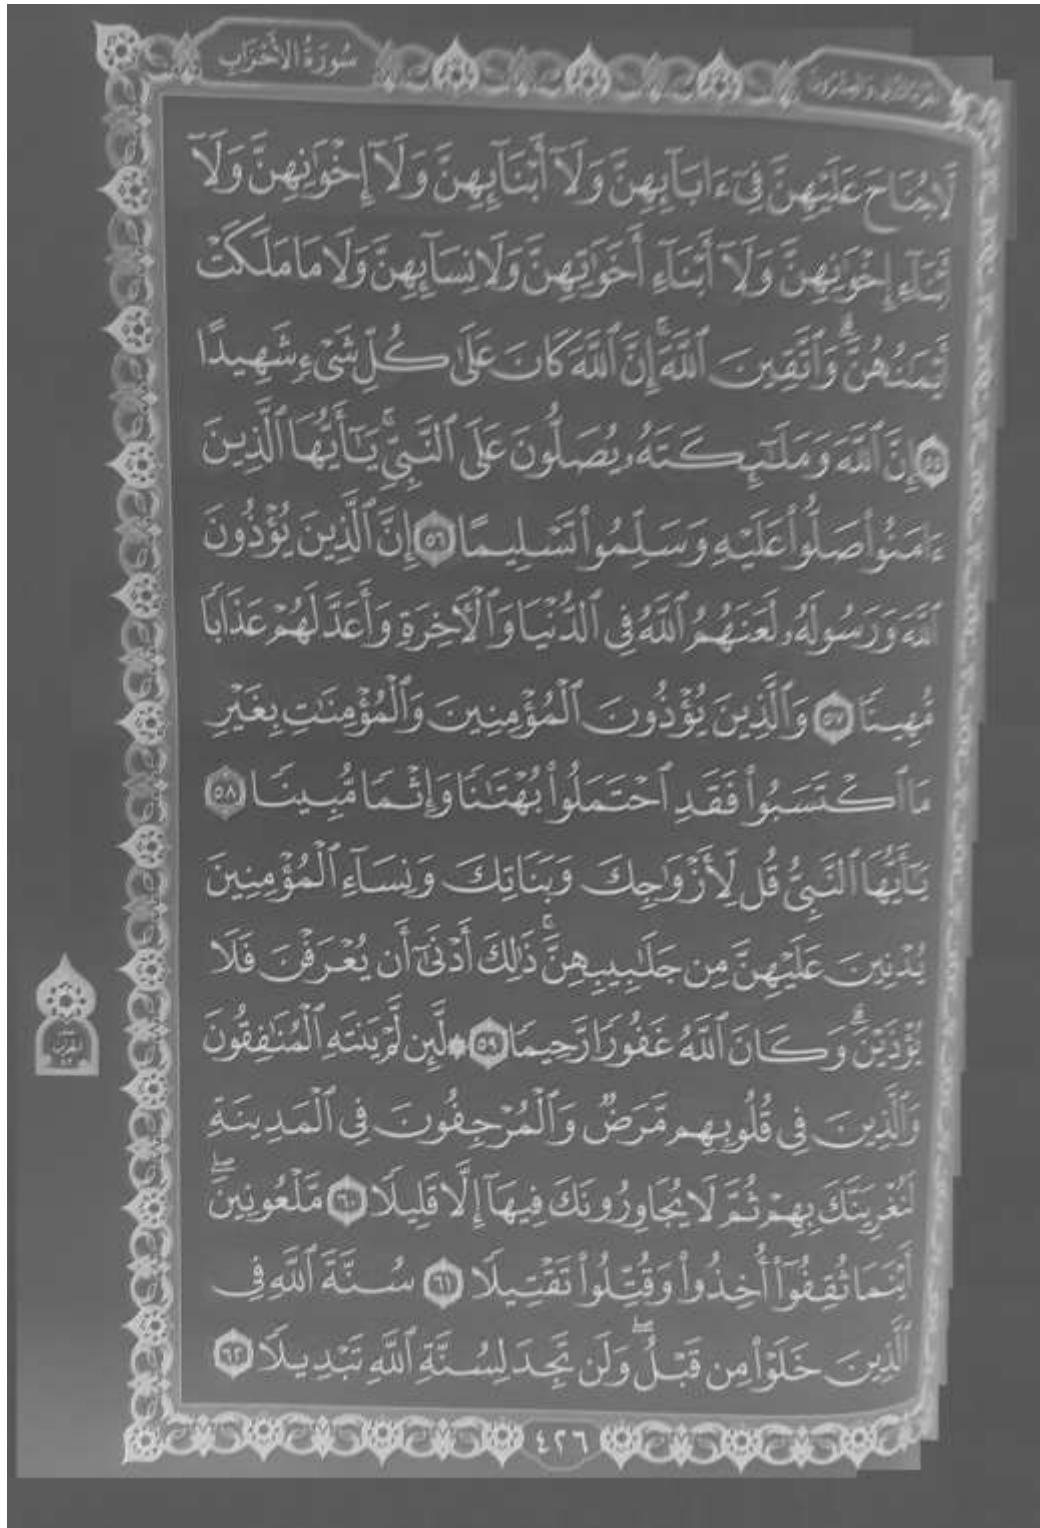 سُورَةُ الأَحْزَابِ
لَّا جُنَاحَ عَلَيْهِنَّ فِىٓ ءَابَآئِهِنَّ وَلَآ أَبْنَآئِهِنَّ وَلَآ إِخْوَٰنِهِنَّ وَلَآ
أَبْنَآءِ إِخْوَٰنِهِنَّ وَلَآ أَبْنَآءِ أَخَوَٰتِهِنَّ وَلَا نِسَآئِهِنَّ وَلَا مَا مَلَكَتْ
أَيْمَٰنُهُنَّ ۗ وَٱتَّقِينَ ٱللَّهَ ۚ إِنَّ ٱللَّهَ كَانَ عَلَىٰ كُلِّ شَىْءٍ شَهِيدًا
٥٥ إِنَّ ٱللَّهَ وَمَلَٰٓئِكَتَهُۥ يُصَلُّونَ عَلَى ٱلنَّبِىِّ ۚ يَٰٓأَيُّهَا ٱلَّذِينَ
ءَامَنُوا۟ صَلُّوا۟ عَلَيْهِ وَسَلِّمُوا۟ تَسْلِيمًا ٥٦ إِنَّ ٱلَّذِينَ يُؤْذُونَ
ٱللَّهَ وَرَسُولَهُۥ لَعَنَهُمُ ٱللَّهُ فِى ٱلدُّنْيَا وَٱلْءَاخِرَةِ وَأَعَدَّ لَهُمْ عَذَابًا
مُّهِينًا ٥٧ وَٱلَّذِينَ يُؤْذُونَ ٱلْمُؤْمِنِينَ وَٱلْمُؤْمِنَٰتِ بِغَيْرِ
مَا ٱكْتَسَبُوا۟ فَقَدِ ٱحْتَمَلُوا۟ بُهْتَٰنًا وَإِثْمًا مُّبِينًا ٥٨
يَٰٓأَيُّهَا ٱلنَّبِىُّ قُل لِّأَزْوَٰجِكَ وَبَنَاتِكَ وَنِسَآءِ ٱلْمُؤْمِنِينَ
يُدْنِينَ عَلَيْهِنَّ مِن جَلَٰبِيبِهِنَّ ۚ ذَٰلِكَ أَدْنَىٰٓ أَن يُعْرَفْنَ فَلَا
يُؤْذَيْنَ ۗ وَكَانَ ٱللَّهُ غَفُورًا رَّحِيمًا ٥٩ ۞ لَّئِن لَّمْ يَنتَهِ ٱلْمُنَٰفِقُونَ
وَٱلَّذِينَ فِى قُلُوبِهِم مَّرَضٌ وَٱلْمُرْجِفُونَ فِى ٱلْمَدِينَةِ
لَنُغْرِيَنَّكَ بِهِمْ ثُمَّ لَا يُجَاوِرُونَكَ فِيهَآ إِلَّا قَلِيلًا ٦٠ مَّلْعُونِينَ ۖ
أَيْنَمَا ثُقِفُوٓا۟ أُخِذُوا۟ وَقُتِّلُوا۟ تَقْتِيلًا ٦١ سُنَّةَ ٱللَّهِ فِى
ٱلَّذِينَ خَلَوْا۟ مِن قَبْلُ ۖ وَلَن تَجِدَ لِسُنَّةِ ٱللَّهِ تَبْدِيلًا ٦٢
٤٢٦